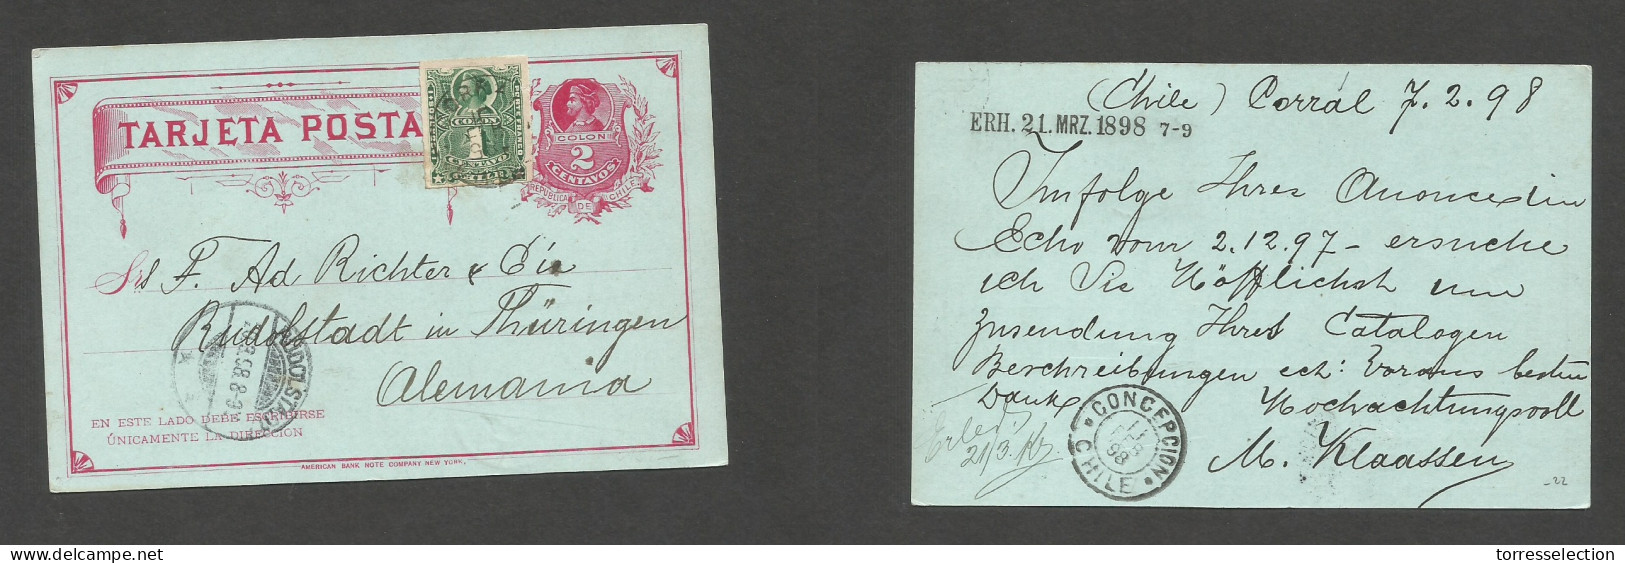 TARJETA POSTA
COLON
1
CENTAVO
COLON
2
CENTAVOS
REPUBLICA DE CHILE
Srs F. Ad Richter & Cia
Rudolstadt in Thüringen
Alemania
RUDOLSTADT
EN ESTE LADO DEBE ESCRIBIRSE
ÚNICAMENTE LA DIRECCION
AMERICAN BANK NOTE COMPANY NEW YORK.
(Chile) Corral 7.2.98
ERH. 21. MRZ. 1898 7-9
Imfolge Ihres Anonces in
Echo vom 2.12.97 - ersuche
ich Sie Höfflichst um
Zusendung Ihres Catalogen
Beschreibungen ect: Voraus besten
Dank
Hochachtungsvoll
M. Klaassen
21/3.
CONCEPCION
11
FEB
98
CHILE
-22
torresselection